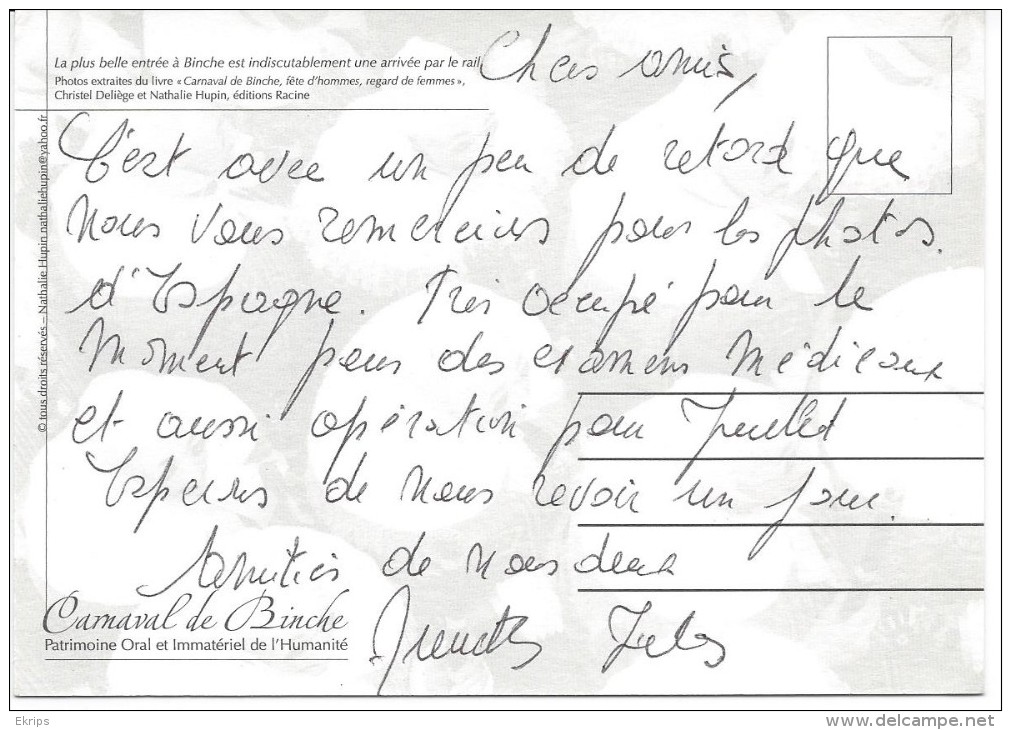 La plus belle entrée à Binche est indiscutablement une arrivée par le rail
Photos extraites du livre « Carnaval de Binche, fête d'hommes, regard de femmes »,
Christel Deliège et Nathalie Hupin, éditions Racine
© tous droits réservés – Nathalie Hupin nathaliehupin@yahoo.fr
Chers amis,
C'est avec un peu de retard que
Nous vous remercions pour les photos.
d'Espagne. Très occupé pour le
Moment pour des examens Médicaux
et aussi opération pour Juillet
Espérons de nous revoir un jour.
Amitiés de nous deux
Jules
Carnaval de Binche
Patrimoine Oral et Immatériel de l'Humanité
Ekrips
www.delcampe.net